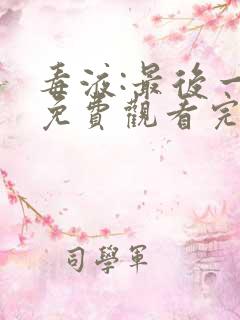 毒液:最後一
免費觀看完
司學軍